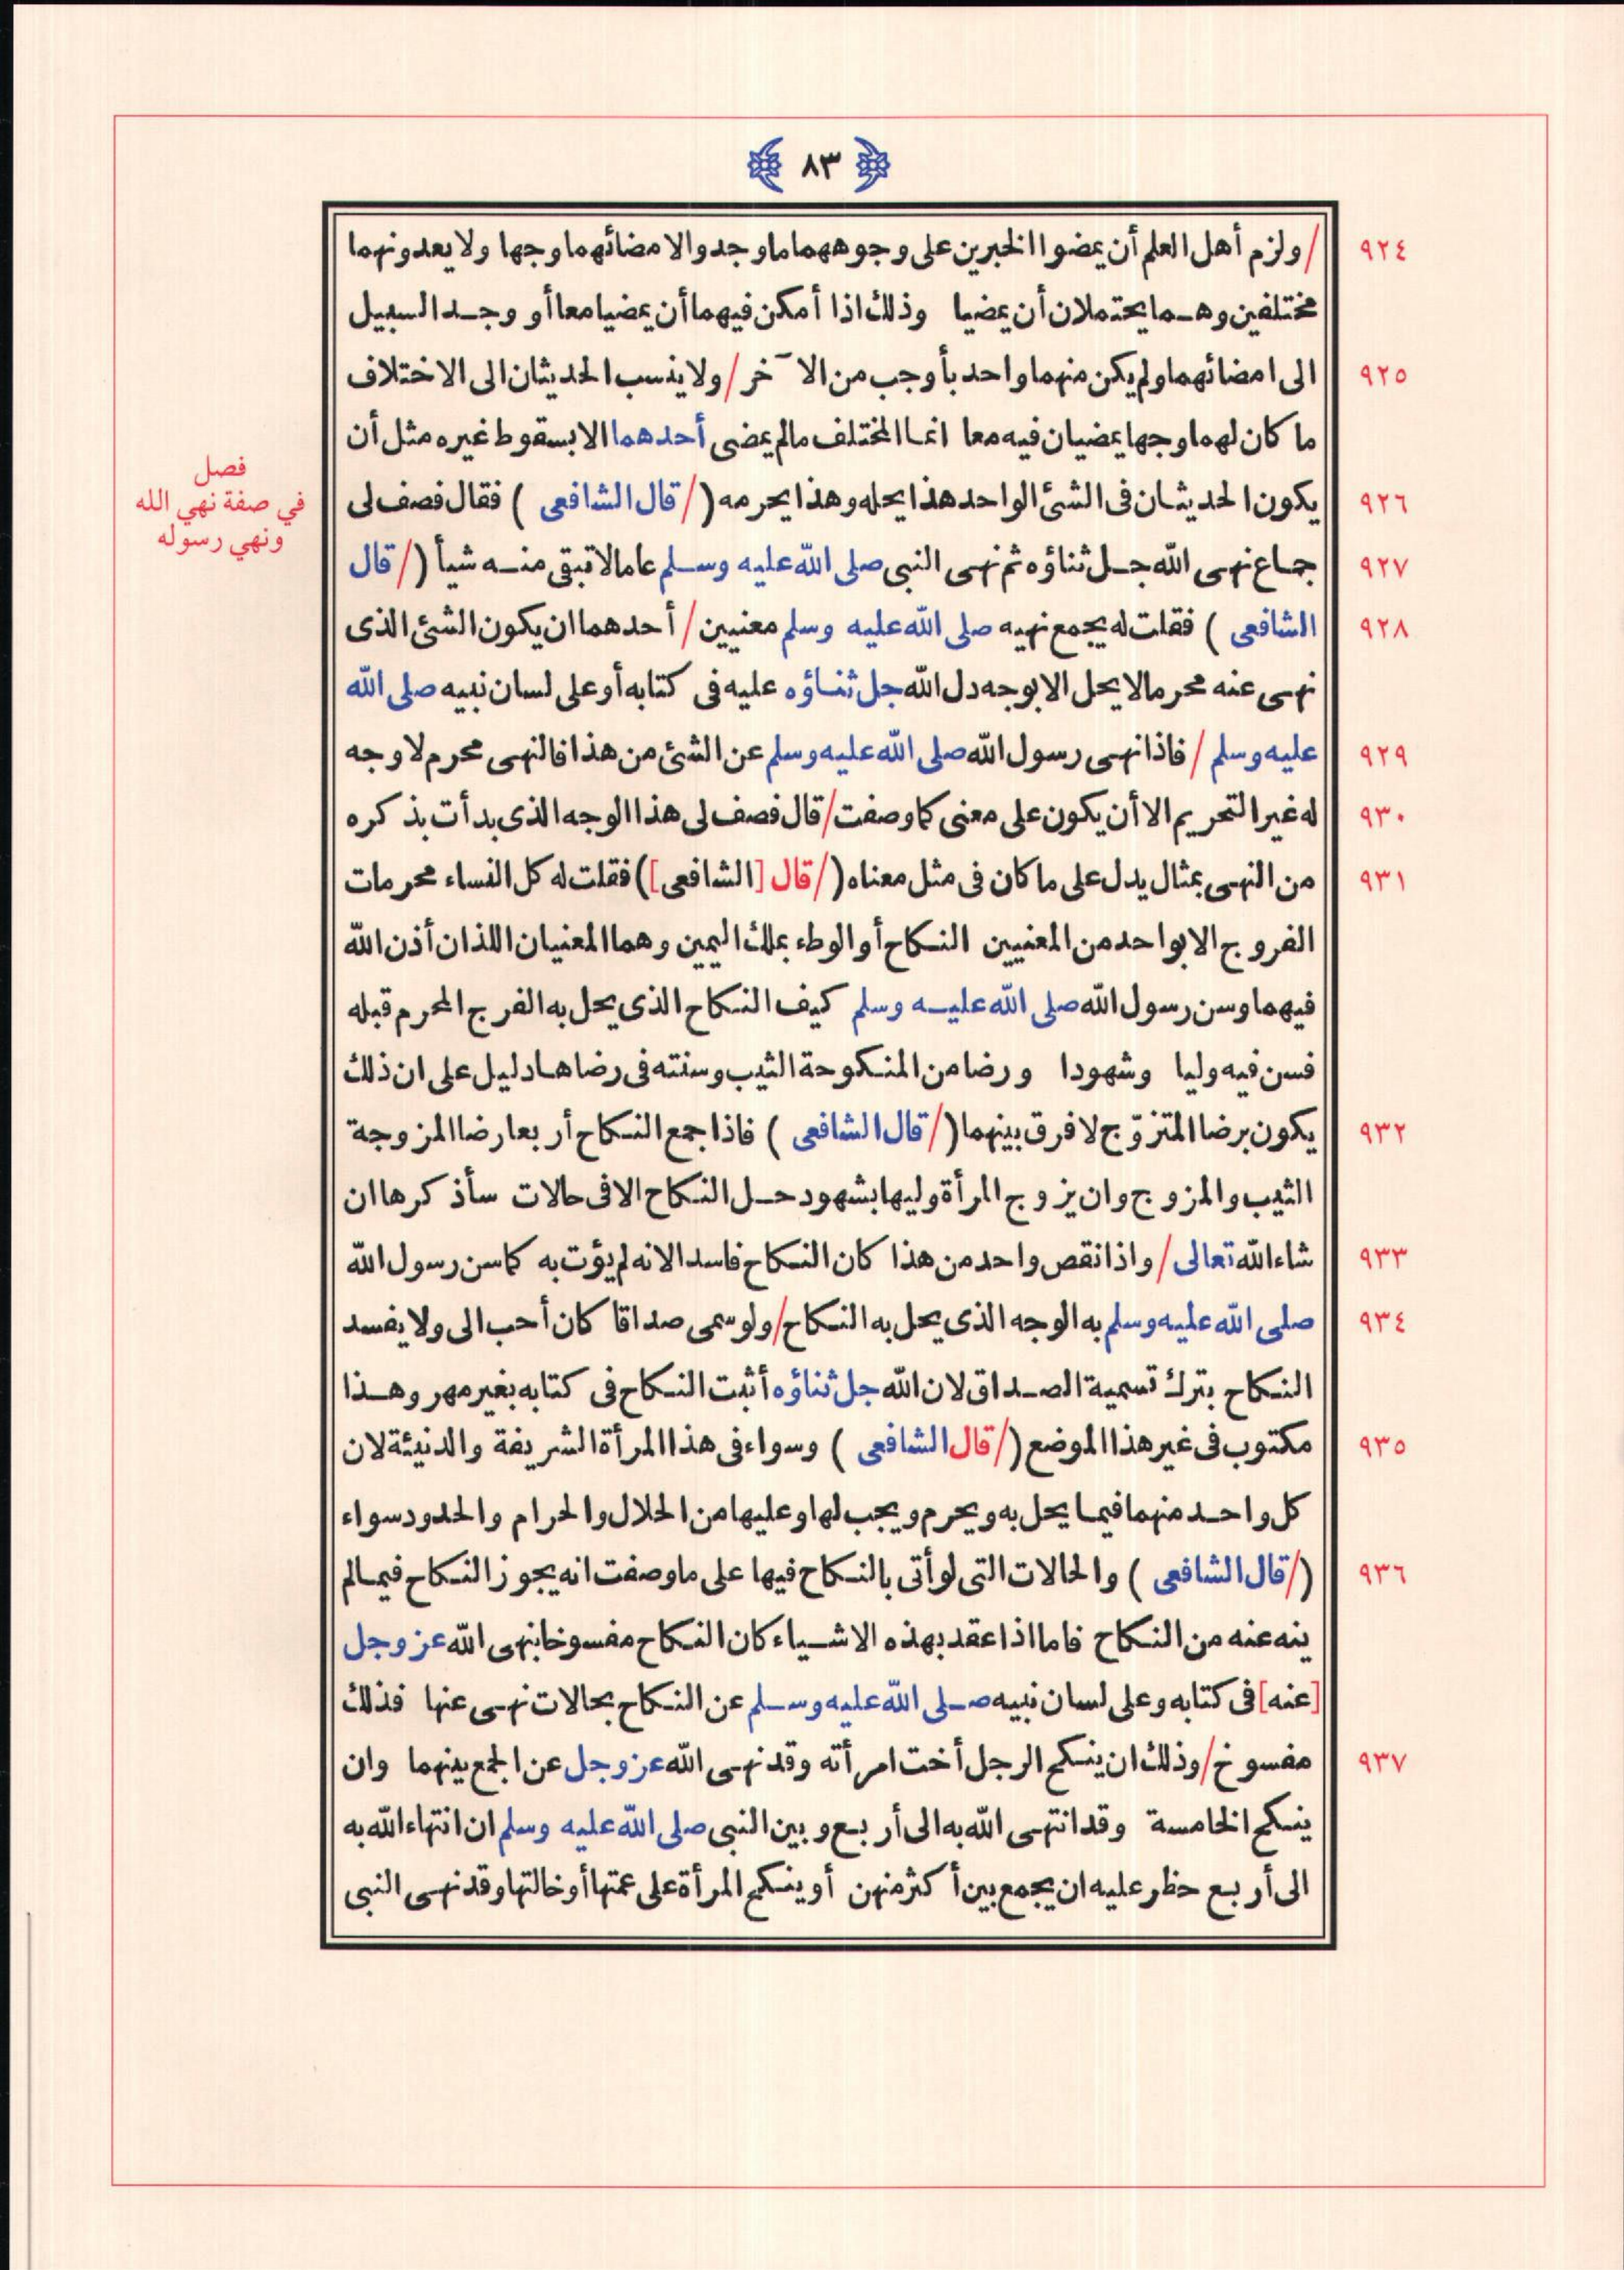 ٨٣
٩٢٤ /ولزم أهل العلم أن يمضوا الخبرين على وجوههما ما وجدوا لامضائهما وجها ولا يعدونهما
مختلفين وهما يحتملان أن يمضيا وذلك اذا أمكن فيهما أن يمضيا معا أو وجد السبيل
٩٢٥ الى امضائهما ولم يكن منهما واحد بأوجب من الآخر / ولا ينسب الحديثان الى الاختلاف
ما كان لهما وجها يمضيان فيه معا انما المختلف مالم يمضى أحدهما الا بسقوط غيره مثل أن
٩٢٦ يكون الحديثان فى الشئ الواحد هذا يحله وهذا يحرمه (/قال الشافعى ) فقال فصف لى
فصل
في صفة نهي الله
ونهي رسوله
٩٢٧ جماع نهى الله جل ثناؤه ثم نهى النبى صلى الله عليه وسلم عاما لا تبقى منه شيأ (/قال
٩٢٨ الشافعى ) فقلت له يجمع نهيه صلى الله عليه وسلم معنيين / أحدهما ان يكون الشئ الذى
نهى عنه محرما لا يحل الا بوجه دل الله جل ثناؤه عليه فى كتابه أو على لسان نبيه صلى الله
٩٢٩ عليه وسلم / فاذا نهى رسول الله صلى الله عليه وسلم عن الشئ من هذا فالنهى محرم لا وجه
٩٣٠ له غير التحريم الا أن يكون على معنى كما وصفت/ قال فصف لى هذا الوجه الذى بدأت بذكره
٩٣١ من النهى بمثال يدل على ما كان فى مثل معناه (/قال [الشافعى]) فقلت له كل النساء محرمات
الفروج الا بواحد من المعنيين النكاح أو الوطء بملك اليمين وهما المعنيان اللذان أذن الله
فيهما وسن رسول الله صلى الله عليه وسلم كيف النكاح الذى يحل به الفرج المحرم قبله
فسن فيه وليا وشهودا ورضا من المنكوحة الثيب وسنته فى رضاها دليل على ان ذلك
٩٣٢ يكون برضا المتزوّج لا فرق بينهما (/قال الشافعى ) فاذا جمع النكاح أربعا رضا المزوجة
الثيب والمزوج وان يزوج المرأة وليها بشهود حل النكاح الا فى حالات سأذكرها ان
٩٣٣ شاء الله تعالى / واذا نقص واحد من هذا كان النكاح فاسدا لانه لم يؤت به كما سن رسول الله
٩٣٤ صلى الله عليه وسلم به الوجه الذى يحل به النكاح/ ولو سمى صداقا كان أحب الى ولا يفسد
النكاح بترك تسمية الصداق لان الله جل ثناؤه أثبت النكاح فى كتابه بغير مهر وهذا
٩٣٥ مكتوب فى غير هذا الموضع (/قال الشافعى ) وسواء فى هذا المرأة الشريفة والدنيئة لان
كل واحد منهما فيما يحل به ويحرم ويجب لها وعليها من الحلال والحرام والحدود سواء
٩٣٦ (/قال الشافعى ) والحالات التى لو أتى بالنكاح فيها على ما وصفت انه يجوز النكاح فيما لم
ينه عنه من النكاح فاما اذا عقد بهذه الاشياء كان النكاح مفسوخا بنهى الله عز وجل
[عنه] فى كتابه وعلى لسان نبيه صلى الله عليه وسلم عن النكاح بحالات نهى عنها فذلك
٩٣٧ مفسوخ/ وذلك ان ينكح الرجل أخت امرأته وقد نهى الله عز وجل عن الجمع بينهما وان
ينكح الخامسة وقد انتهى الله به الى أربع وبين النبى صلى الله عليه وسلم ان انتهاء الله به
الى أربع حظر عليه ان يجمع بين أكثر منهن أو ينكح المرأة على عمتها أو خالتها وقد نهى النبى